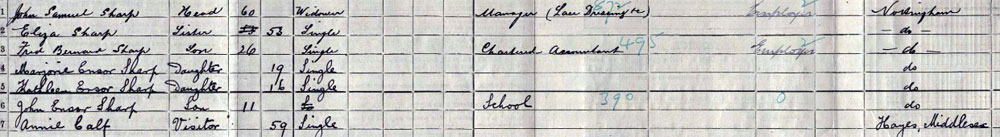 1 John Samuel Sharp Head 60 Widower Manager (Lace Dressing &c) Employer Nottingham
2 Eliza Sharp Sister 53 Single - do -
3 Fred Bernard Sharp Son 26 Single Chartered Accountant 495 Employer - do -
4 Marjorie Ensor Sharp Daughter 19 Single do
5 Kathleen Ensor Sharp Daughter 16 Single do
6 John Ensor Sharp Son 11 School 390 0 do
7 Annie Calf Visitor 59 Single Hayes, Middlesex